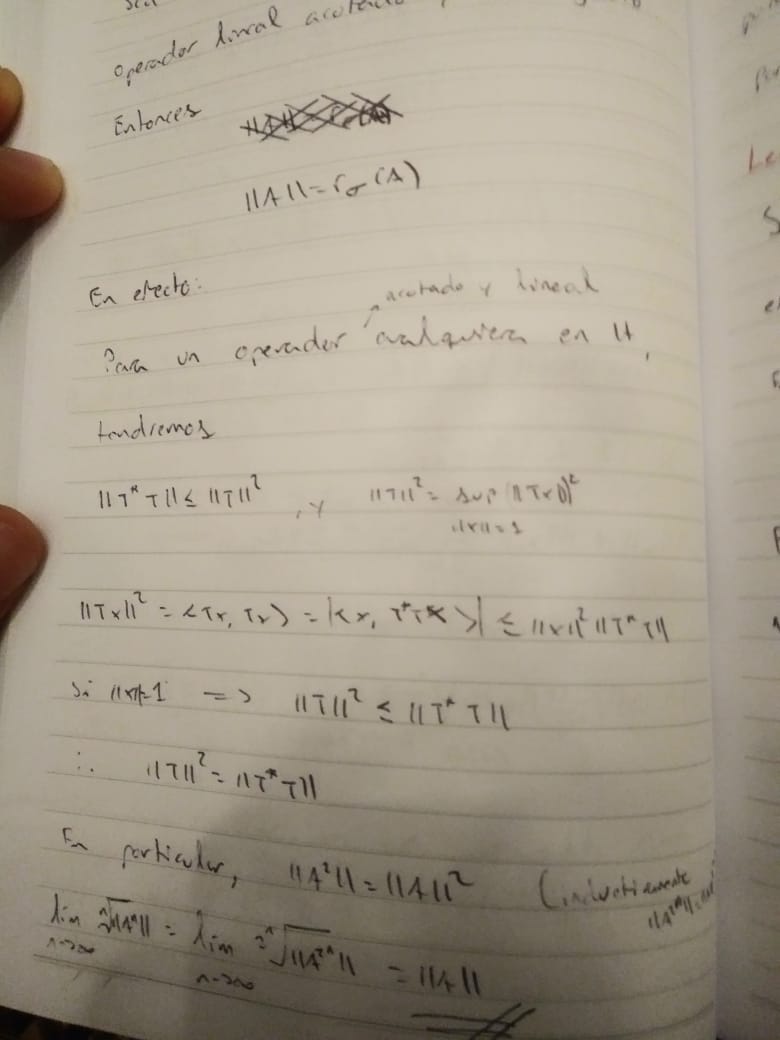 operador lineal acotado
Entonces
||A|| = rσ(A)
En efecto:
acotado y lineal
Para un operador cualquiera en H,
tendremos
||T*T|| ≤ ||T||² , y ||T||² = sup (||Tx||)²
||x||=1
||Tx||² = <Tx, Tx> = |<x, T*Tx>| ≤ ||x||² ||T*T||
Si ||x||=1 => ||T||² ≤ ||T*T||
∴ ||T||² = ||T*T||
En particular, ||A²|| = ||A||² (inductivamente
lim ⁿ√||Aⁿ|| = lim ²ⁿ√||A²ⁿ|| = ||A||
n→∞ n→∞